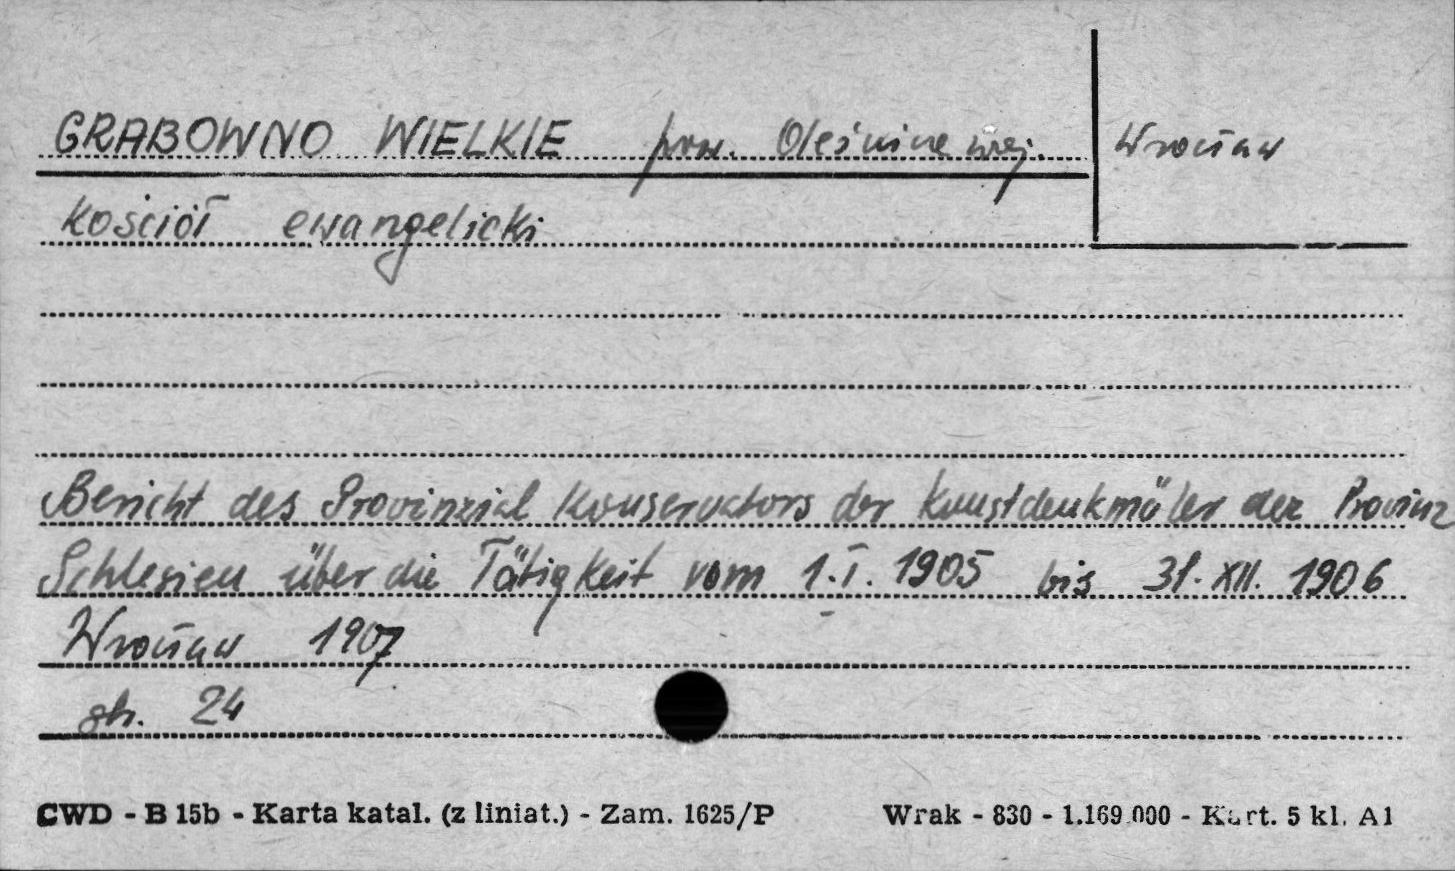 GRABOWNO WIELKIE pow. Oleśnica woj. Wrocław
Kościół ewangelicki
Bericht des Provinzial Konservators der Kunstdenkmäler der Provinz
Schlesien über die Tätigkeit vom 1.I. 1905 bis 31.XII. 1906
Wrocław 1907
str. 24
CWD - B 15b - Karta katal. (z liniat.) - Zam. 1625/P Wrak - 830 - 1.169.000 - Kart. 5 kl. A1